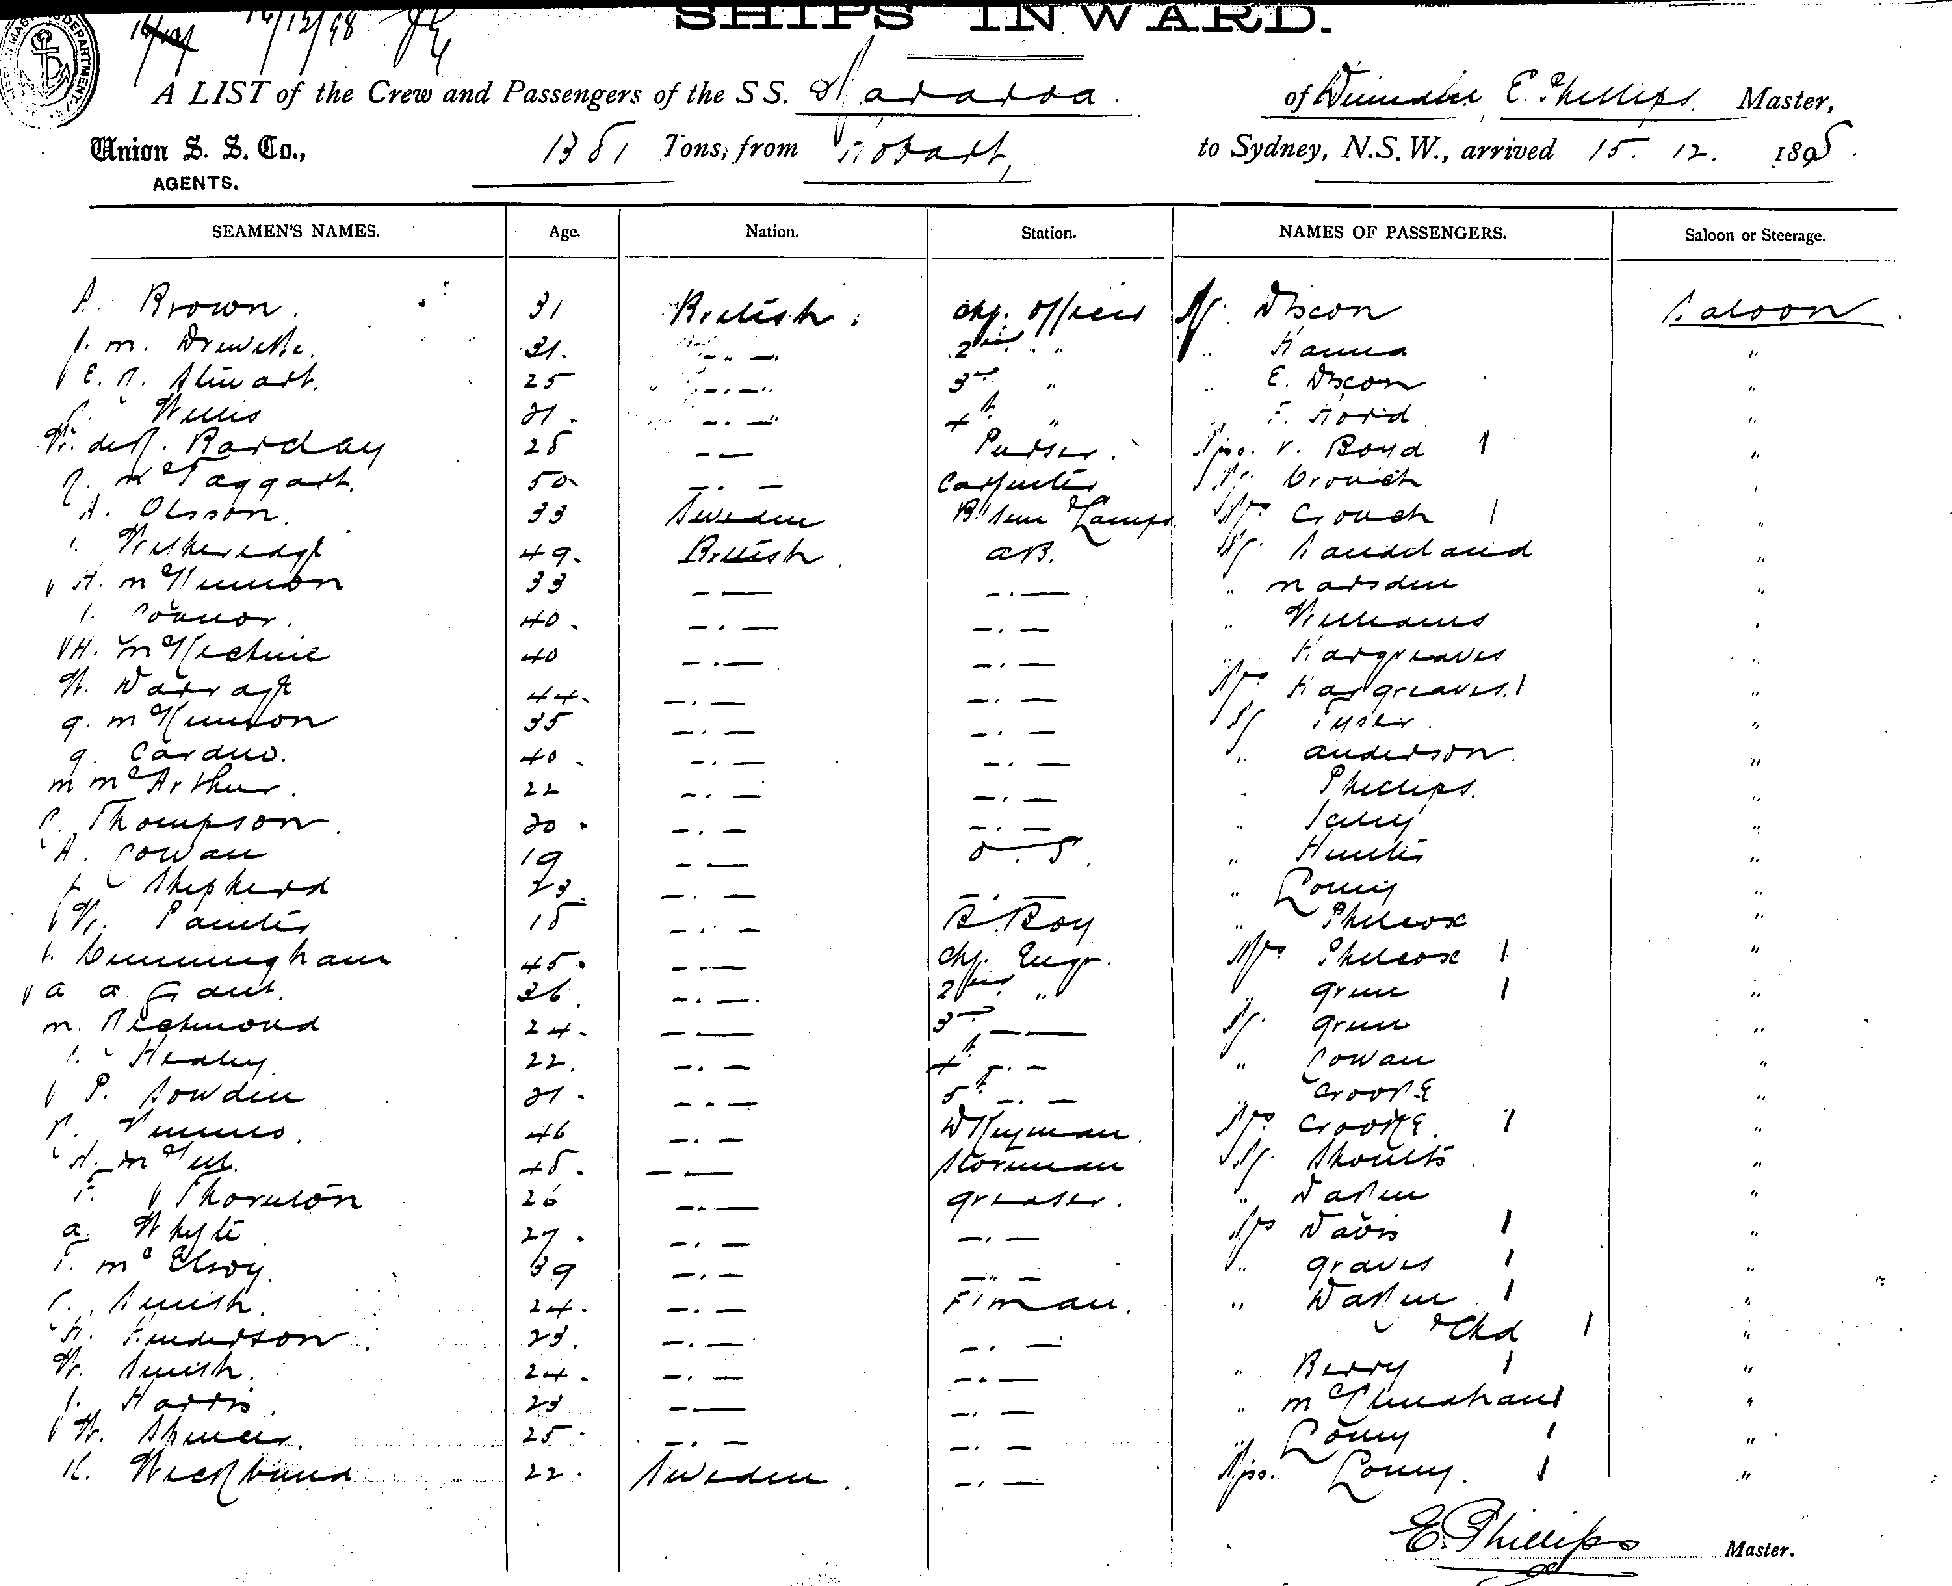 16/12/98
SHIPS INWARD.
A LIST of the Crew and Passengers of the SS. Nararoa of Dunedin, E. Phillips Master,
Union S. S. Co., AGENTS. Tons, from Hobart, to Sydney, N.S.W., arrived 15. 12. 1898.
SEAMEN'S NAMES. Age. Nation. Station. NAMES OF PASSENGERS. Saloon or Steerage.
Brown. 31 British. Chf. Officer Mr. Dixon Saloon
J. M. 31. 2nd " " Hanna "
E. R. Stewart. 25 3rd " " E. Dixon "
Willis 21. 4th " " F. Hord "
W. de R. Barclay 28 Purser. Miss V. Boyd 1 "
McTaggart. 50 Carpenter Mr. Crouch
A. Olsson. 33 Sweden B. Sen & Lamps Mrs Crouch 1 "
Wetheredge 49. British. AB. Mr. Sandeland "
A. McKinnon 33 " Marsden "
J. Connor. 40. " Williams
H. McKechnie 40 " Hargreaves "
W. Darragh 44. Mrs Hargreaves. 1 "
G. McKinnon 35 Mr Tyser. "
G. Carduo. 40. " Anderson. "
M McArthur. 22 Phillips. "
Thompson. 20. "
A. Cowan 19 O.S. " Hunter "
Shepherd 23. " "
W. Painter 18 B. Boy " Philcox "
Cunningham 45. Chf. Engr. Mrs Philcox 1 "
A A Gant. 36. 2nd " " Green 1 "
M. Richmond 24. 3rd Mr. Green "
Healey 22. 4th " Cowan "
P. Sowden 21. 5th " Crooke "
46 Dkeyman. Mrs Crooke. 1 "
48. Storeman Mr. Shoults "
F. Thornton 26 Greaser. " Daken "
A. Whyte 27. Mrs Davis 1 "
F. McElroy. 39 " Graves 1 "
Smith. 24. F'man. " Daken 1 "
A. Henderson. 23. & Chd 1 "
W. Smith. 24. " Berry 1 "
J. Harris. 23 " 1 "
W. Spencer. 25. " 1 "
K. 22. Sweden. Miss. 1 "
E. Phillips Master.